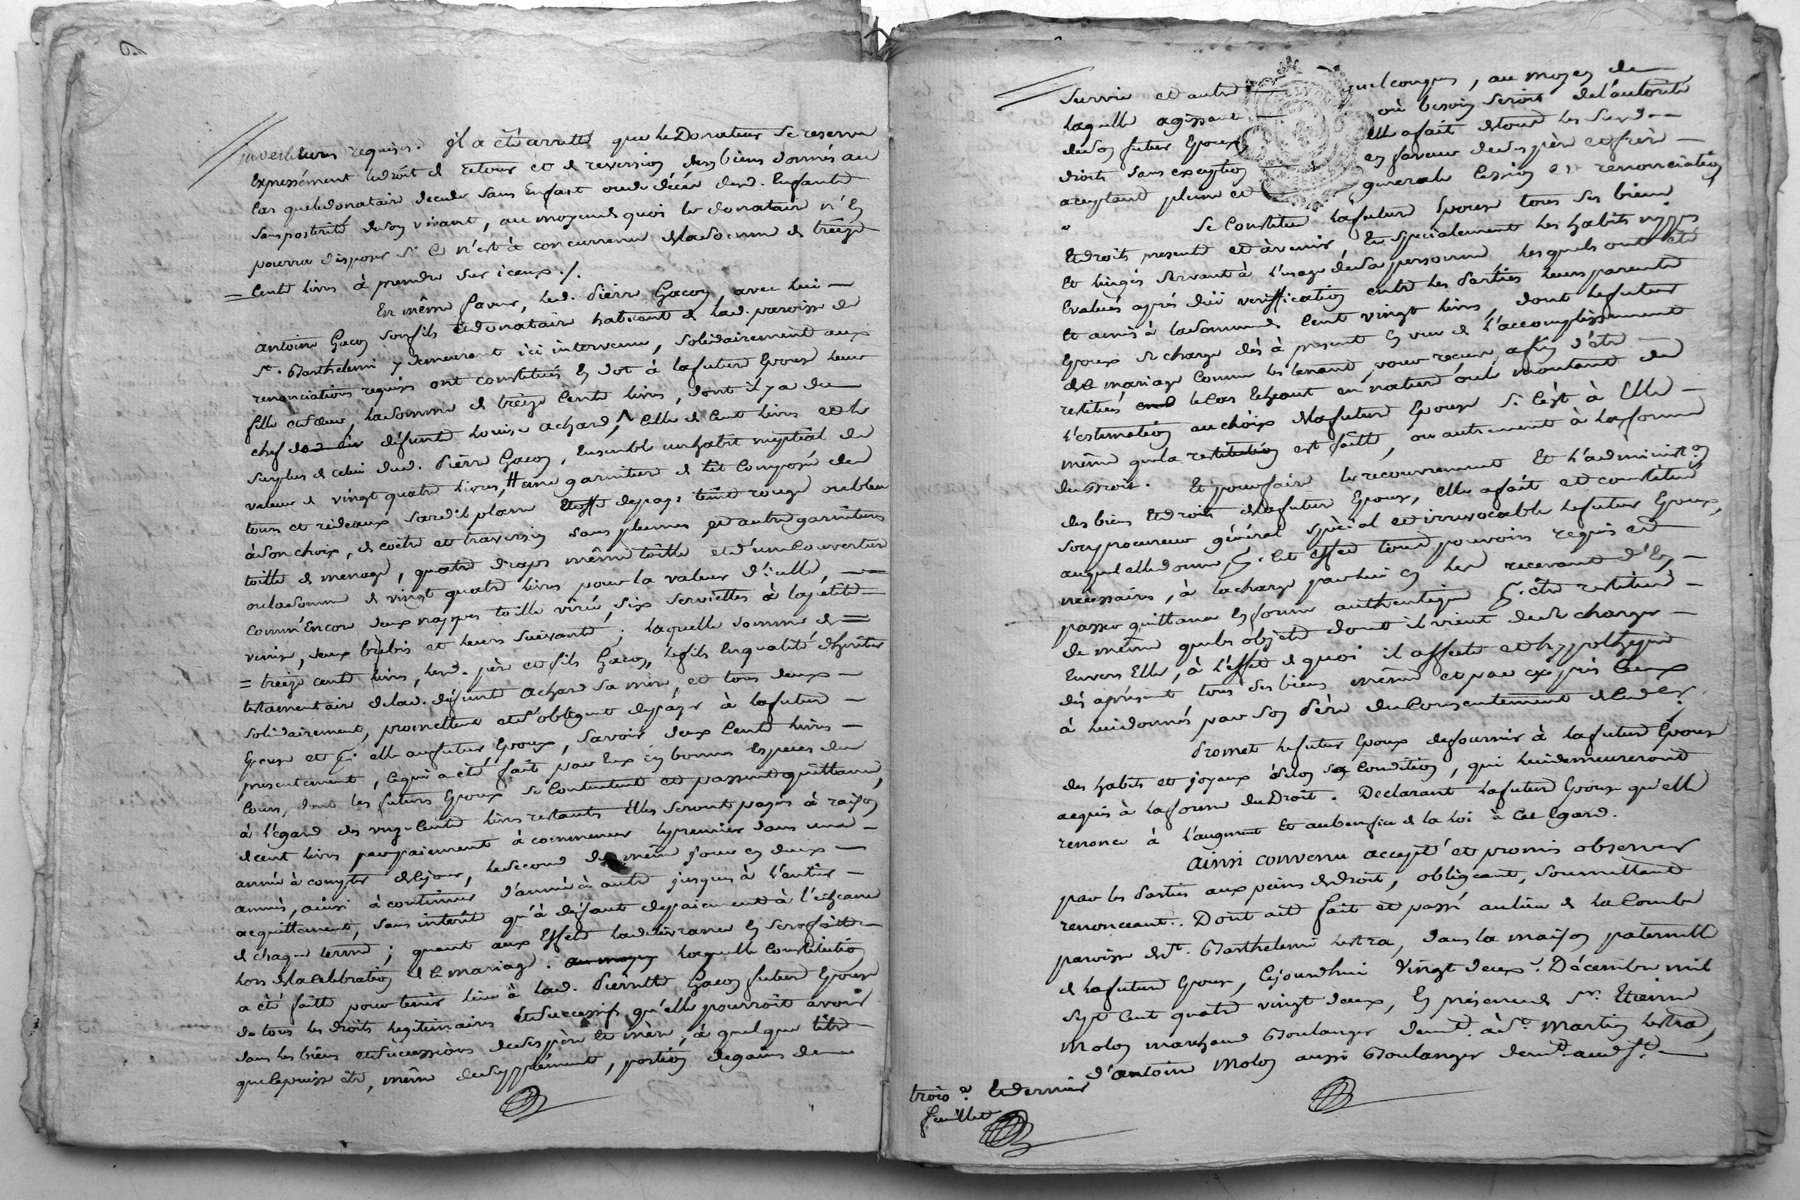 requises. il a été arretté que le Donateur se reserve
Expressément le droit de retour et de reversion des biens donnés au
Cas que le donataire decede sans Enfant ou de décès desd. Enfants
sans posterité de son vivant, au moyen de quoi le donataire n'en
pourra disposer si ce n'est à concurrence de la somme de treize
Cents livres à prendre sur iceux ./.
En même faveur, led. Pierre Gacon avec lui
antoine Gacon son fils et donataire habitant de lad. paroisse de
St. Barthelemi y demeurant ici intervenu, solidairement aux
renonciations requises ont constitués en dot à la future Epouse leur
fille et soeur, la somme de treize Cents livres, dont il y a du
chef de défunte Louise achard, Celle de Cent livres et le
surplus de celui dud. Pierre Gacon, Ensemble un habit nuptial de
valeur de vingt quatre livres, une garniture de lit Composée de
tours et rideaux sardil plain Etoffe de pays teint rouge ou bleu
à son choix, de coëtre et traversin sans plumes et autre garniture
toille de menage, quatre draps même toille et d'une Couverture
ou la somme de vingt quatre livres pour la valeur d'icelle,
comm'Encore deux nappes toille virée, six serviettes à la petite
venise, deux brebis et leurs suivants ; laquelle somme de
treize cents livres, lesd. père et fils Gacon, le fils En qualité d'héritier
testamentaire de lad. défunte achard sa mère, et tous deux
solidairement, promettent et s'obligent de payer à la future
Epouse et pr. elle au futur Epoux, savoir deux Cents livres
présentement, ce qui a été fait par Eux en bonnes Especes de
Cours, dont les futurs Epoux se Contentent et passent quittance,
à l'égard des onze Cents livres restants Elles seront payés à raison
de cent livres par paiement à commencer le premier dans une
année à compter de ce jour, le second de même jour en deux
années, ainsi à continuer d'année à autre jusques à l'entier
acquittement, sans interêt qu'à défaut de paiement à l'échéance
de chaque terme ; quant aux Effets la délivrance En sera faitte
lors de la Célébration de ce mariage. laquelle Constitution
a été faitte pour tenir lieu à lad. Pierrette Gacon future Epouse
de tous les droits legitimaires et successifs qu'elle pourroit avoir
dans les biens et successions de ses père et mère, à quelque titre
que ce puisse être, même de supplément, portion de gains de
survie et autre quelconques, au moyen de
laquelle agissant où besoin seroit de l'autorité
de son futur Epoux Elle a fait de tous les susd.
droits sans exception en faveur de ses père et frère
acceptant pleine et generale Cession et renonciation
Se Constitue la future Epouse tous ses biens
Et droits presents et àvenir, Et spécialement les habits nippes
Et linges servant à l'usage de sa personne lesquels ont été
Evalués après düe vérification entre les Parties leurs parents
Et amis à la somme de Cent vingt livres, dont le futur
Epoux se charge dès à present En vue de l'accomplissement
de ce mariage Comme les tenant pour recus, afin d'être
restitués le Cas Echeant en nature ou le montant de
l'estimation au choix de la future Epouse si C'est à Elle
même que la restitution est faitte, ou autrement à la forme
du Droit. Et pour faire le recouvrement Et l'administon
des biens Et droits de la future Epouse, Elle a fait et constitué
son procureur général spécial et irrevocable le futur Epoux,
auquel elle donne pr. cet effet tous pouvoirs requis et
nécessaires, à la charge par lui en les recevant d'En
passer quittance En forme authentique pr. être restitués
de même que les objets dont il vient de se charger
Envers Elle, à l'effet de quoi il affecte et hypothéque
dès àprésent tous ses biens même et par exprès Ceux
à lui donnés par son Père du Consentement de ced er.
Promet le futur Epoux de fournir à la future Epouse
des habits et joyaux selon sa Condition, qui lui demeureront
acquis à la forme du Droit. Declarant la future Epouse qu'elle
renonce à l'augment Et au benefice de la loi à Cet Egard.
Ainsi convenu accepté et promis observer
par les Parties aux peines de droit, obligeant, soumettant
renonceant. Dont acte fait et passé au lieu de la Combe
paroisse de St. Barthelemi Lestra, dans la maison paternelle
de la future Epouse, Cejourdhui Vingt deux Décembre mil
sept Cent quatre vingt deux, En présence de Sr. Etienne
Molon marchand Boulanger demt. à St. Martin Lestra,
d'antoine Molon aussi Boulanger demt. aud. St.
trois e. et dernier
feuillet